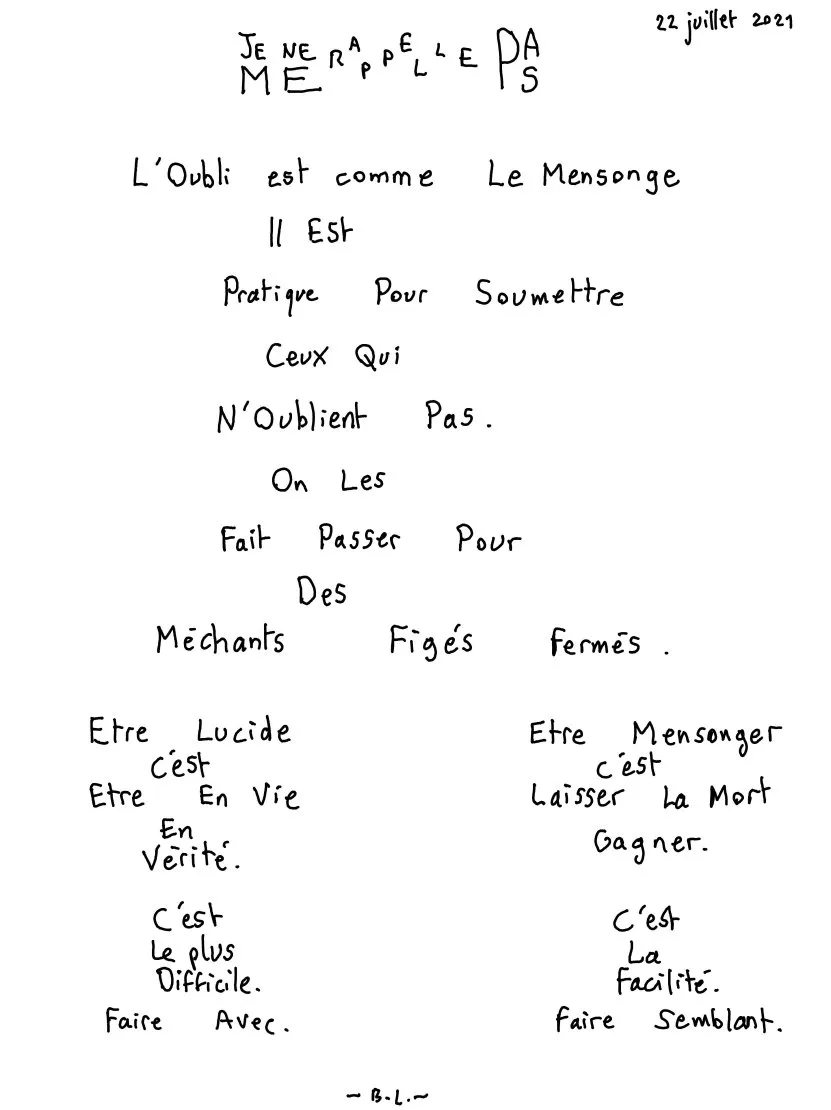 22 juillet 2021
JE NE ME RAPPELLE PAS
L'Oubli est comme Le Mensonge
Il Est
Pratique Pour Soumettre
Ceux Qui
N'Oublient Pas.
On Les
Fait Passer Pour
Des
Méchants Figés fermés.
Etre Lucide
c'est
Etre En Vie
En
Vérité.
C'est
Le plus
Difficile.
Faire Avec.
Etre Mensonger
c'est
Laisser La Mort
Gagner.
C'est
La
Facilité.
Faire Semblant.
~ B.L. ~